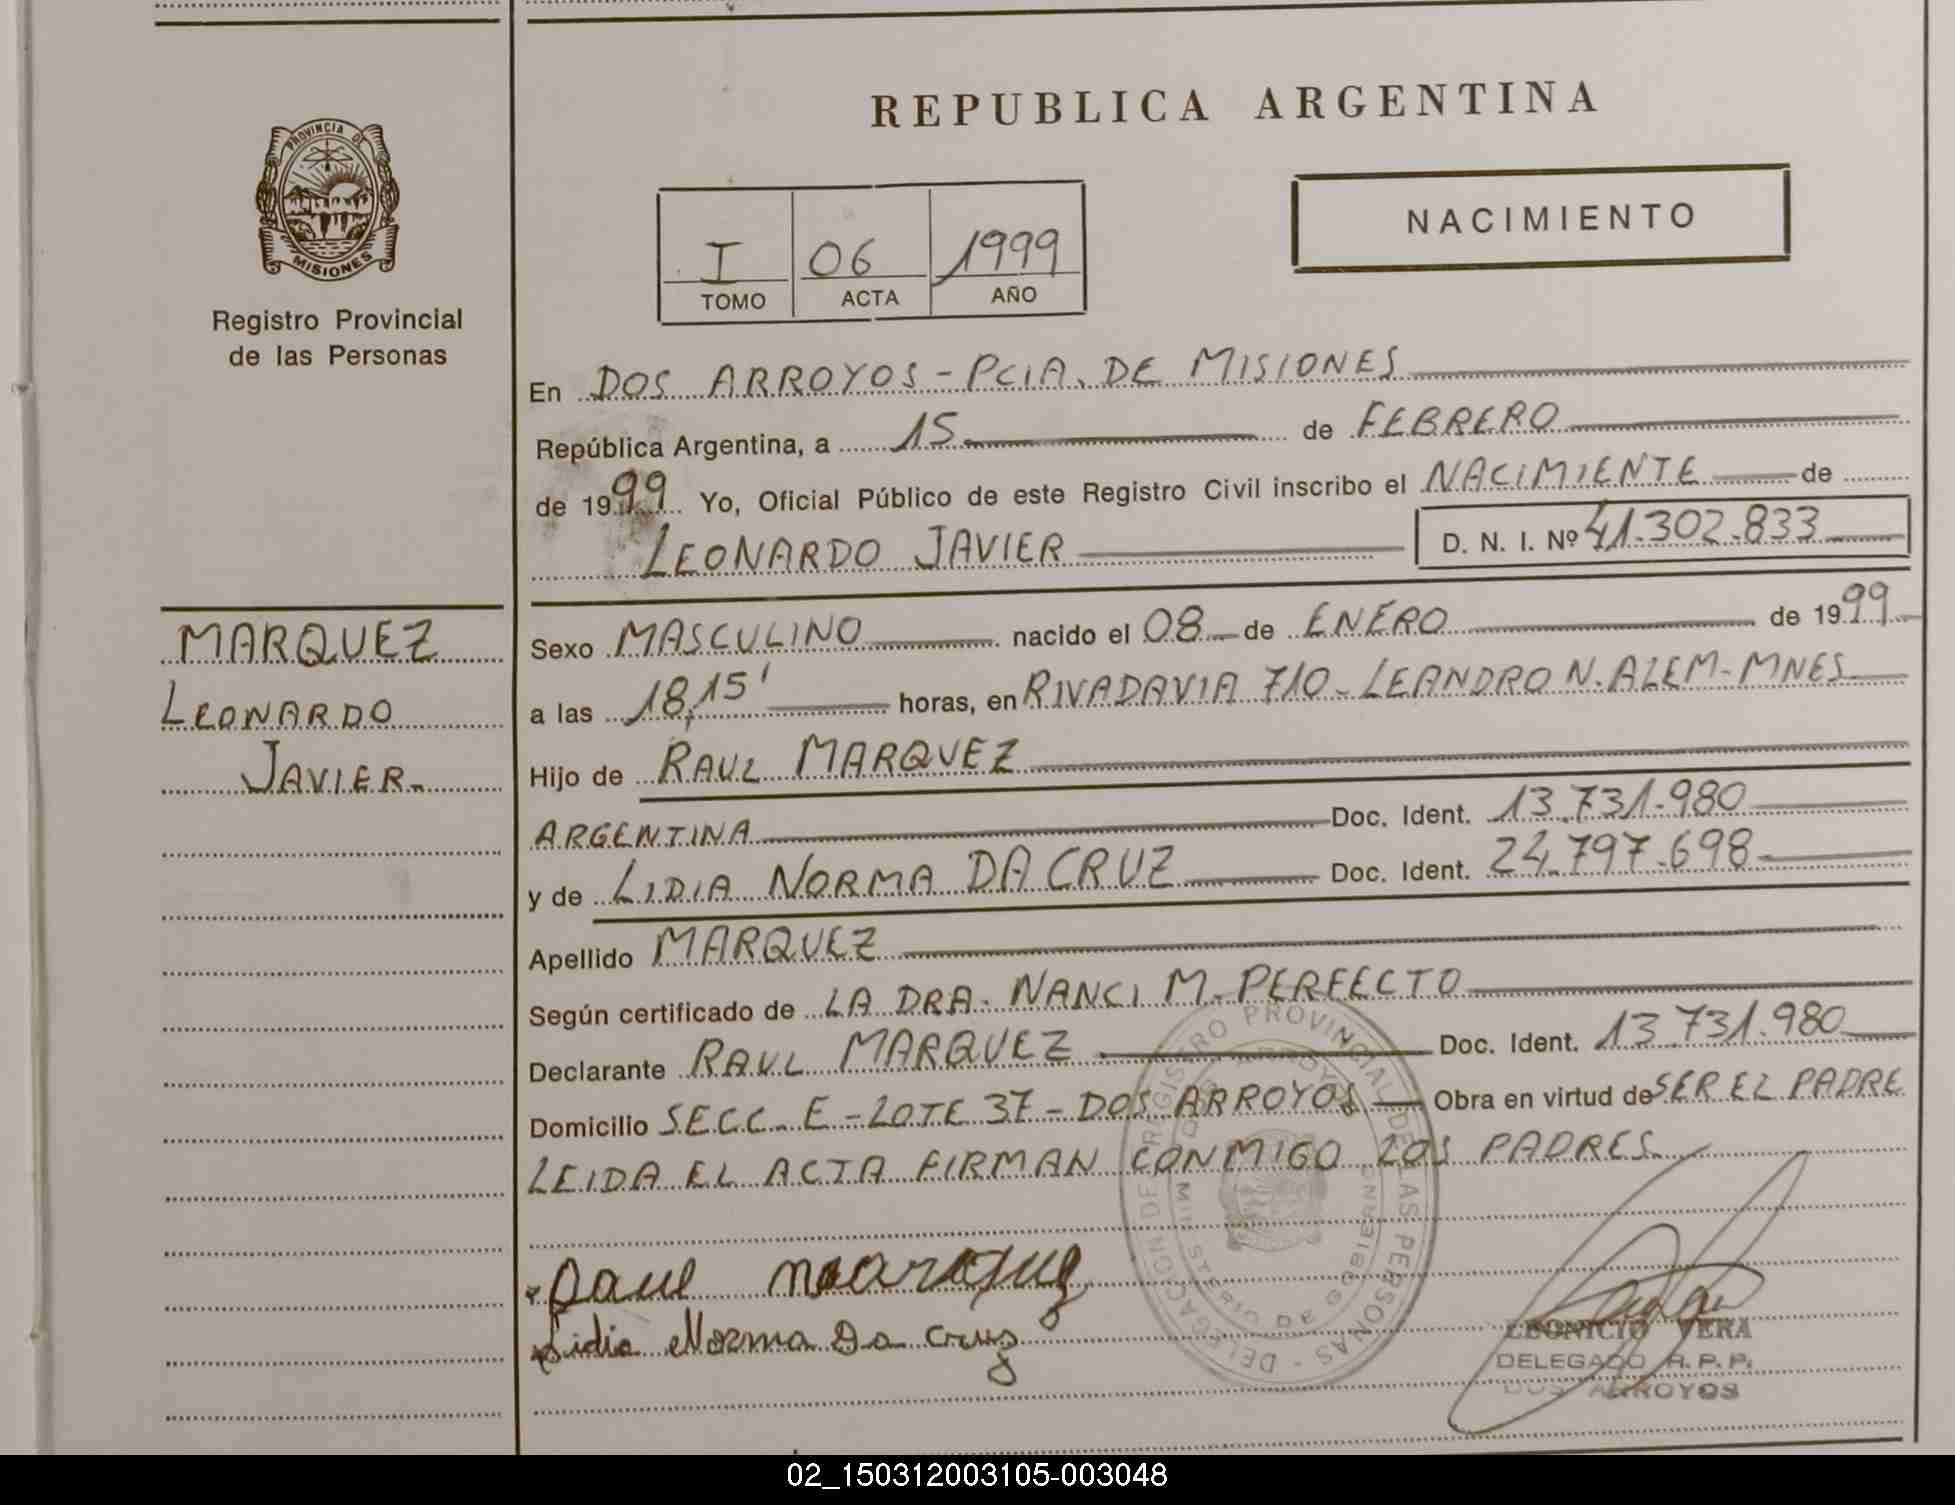 REPUBLICA ARGENTINA
PROVINCIA DE
MISIONES
Registro Provincial
de las Personas
NACIMIENTO
I 06 1999
TOMO ACTA AÑO
En DOS ARROYOS - PCIA. DE MISIONES
República Argentina, a 15 de FEBRERO
de 1999 Yo, Oficial Público de este Registro Civil inscribo el NACIMIENTE de
LEONARDO JAVIER D. N. I. Nº 41.302.833
MARQUEZ
LEONARDO
JAVIER.-
Sexo MASCULINO nacido el 08 de ENERO de 1999
a las 18,15' horas, en RIVADAVIA 710 - LEANDRO N. ALEM - MNES
Hijo de RAUL MARQUEZ
ARGENTINA Doc. Ident. 13.731.980
y de LIDIA NORMA DA CRUZ Doc. Ident. 24.797.698
Apellido MARQUEZ
Según certificado de LA DRA. NANCI M. PERFECTO
Declarante RAUL MARQUEZ Doc. Ident. 13.731.980
Domicilio SECC. E - LOTE 37 - DOS ARROYOS Obra en virtud de SER EL PADRE
LEIDA EL ACTA FIRMAN CONMIGO LOS PADRES
Raul Marquez
Lidia Norma Da Cruz
DELEGACION DE REGISTRO PROVINCIAL DE LAS PERSONAS -
DOS ARROYOS
MINISTERIO DE GOBIERNO
LEONICIO VERA
DELEGADO R. P. P.
DOS ARROYOS
02_150312003105-003048